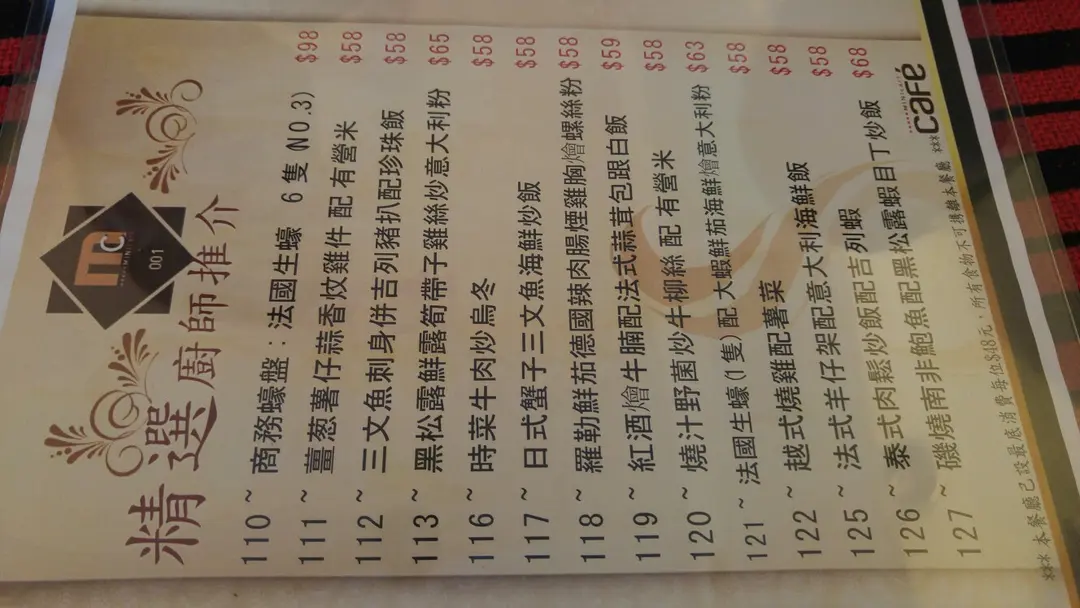 MC
001
精選廚師推介
110 ~ 商務蠔盤：法國生蠔 6 隻 (NO.3) $98
111 ~ 薑葱薯仔蒜香炆雞件 配 有營米 $58
112 ~ 三文魚刺身併吉列豬扒配珍珠飯 $58
113 ~ 黑松露鮮露筍帶子雞絲炒意大利粉 $65
116 ~ 時菜牛肉炒烏冬 $58
117 ~ 日式蟹子三文魚海鮮炒飯 $58
118 ~ 羅勒鮮茄德國辣肉腸煙雞胸燴螺絲粉 $58
119 ~ 紅酒燴牛腩配法式蒜茸包跟白飯 $59
120 ~ 燒汁野菌炒牛柳絲 配 有營米 $58
121 ~ 法國生蠔 (1 隻) 配 大蝦鮮茄海鮮燴意大利粉 $63
122 ~ 越式燒雞配薯菜 $58
125 ~ 法式羊仔架配意大利海鮮飯 $58
126 ~ 泰式肉鬆炒飯配吉列蝦 $58
127 ~ 磯燒南非鮑魚配黑松露蝦目丁炒飯 $68
café
*** 本餐廳已設最底消費每位$48元、所有食物不可攜離本餐廳 ***